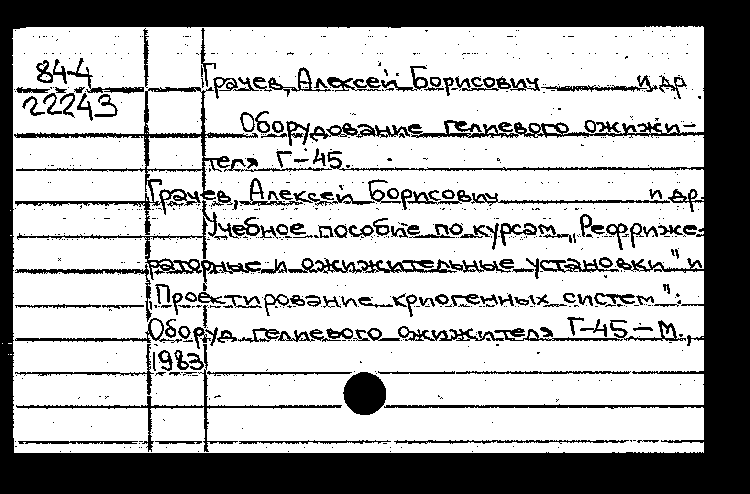 84-4
22243
Грачев, Алексей Борисович и др
Оборудование гелиевого ожижи-
теля Г-45.
Грачев, Алексей Борисович и др.
Учебное пособие по курсам „Рефриже-
раторные и ожижительные установки" и
"Проектирование криогенных систем":
Оборуд гелиевого ожижителя Г-45 – М.,
1983